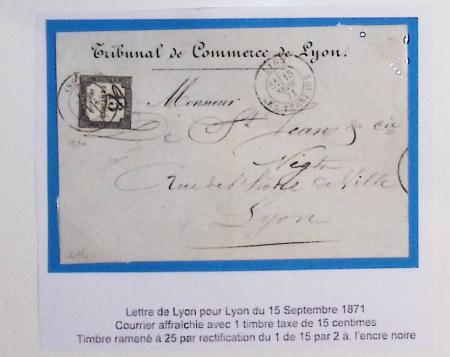 Tribunal de Commerce de Lyon.
LYON
15
Monsieur
De St Jean & cie
Négts
Rue de l'hôtel de Ville
Lyon
Lettre de Lyon pour Lyon du 15 Septembre 1871
Courrier affraîchie avec 1 timbre taxe de 15 centimes
Timbre ramené à 25 par rectification du 1 de 15 par 2 à, l'encre noire